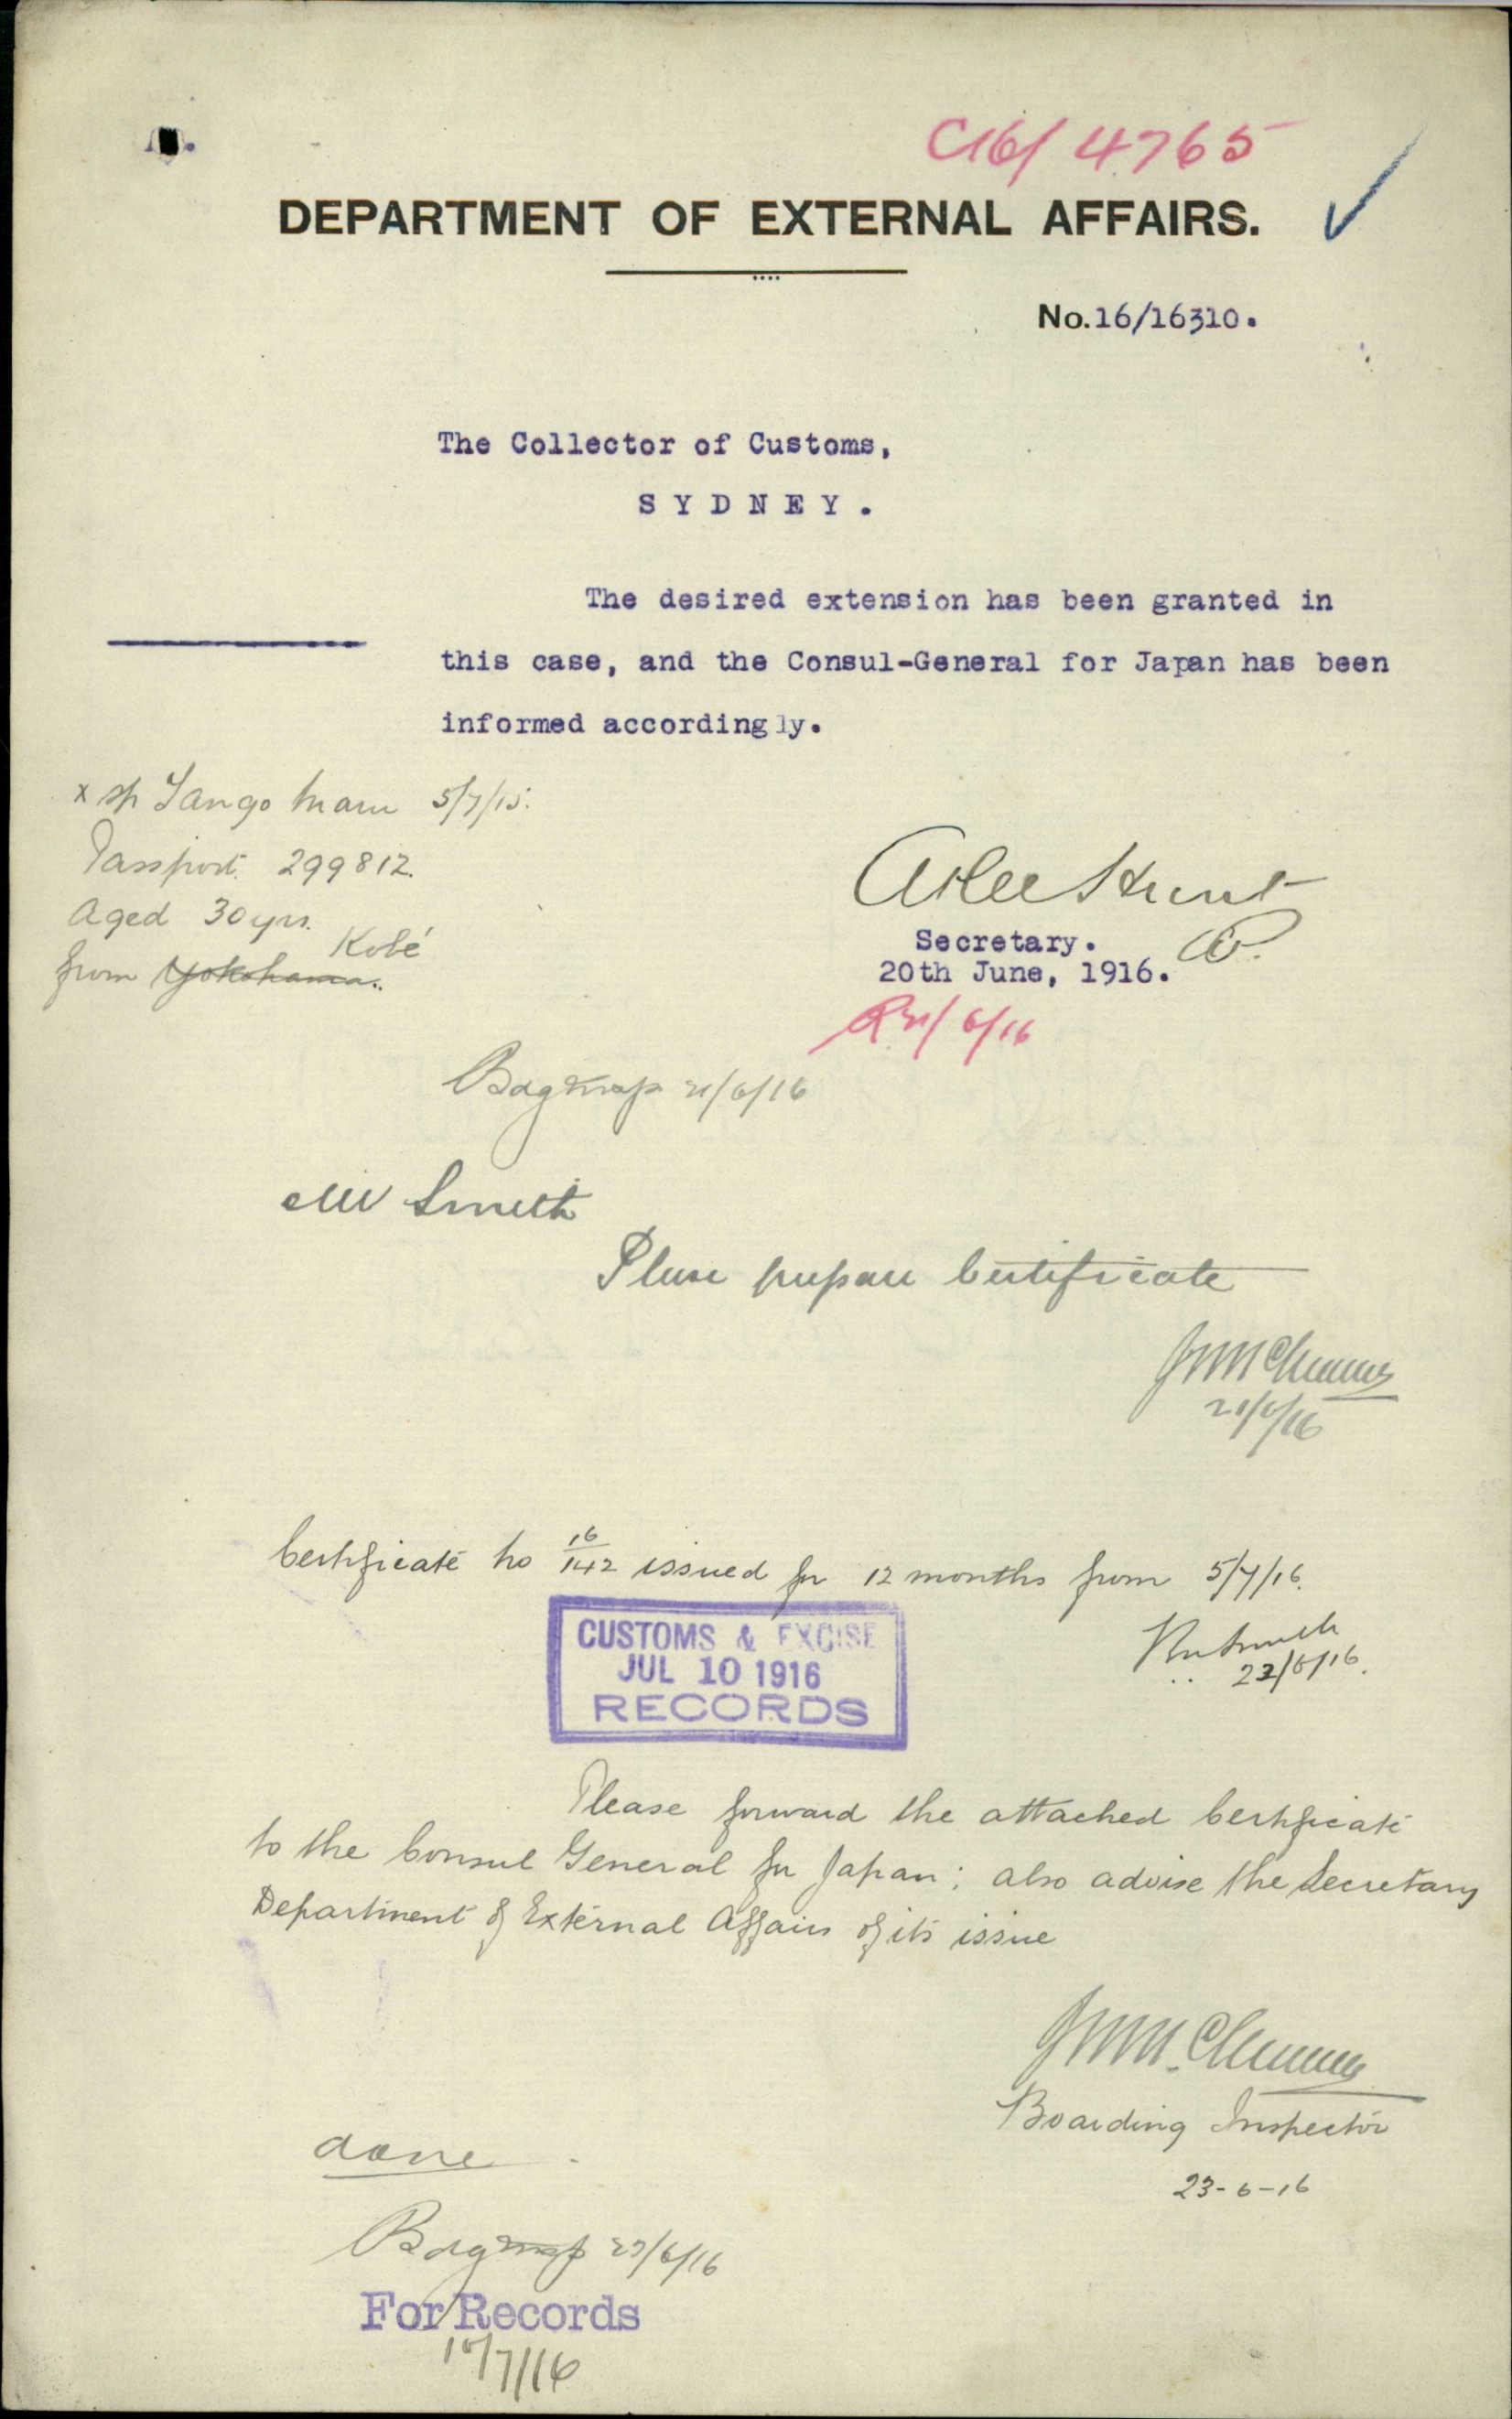 C16/4765
DEPARTMENT OF EXTERNAL AFFAIRS.
No.16/16310.
The Collector of Customs,
SYDNEY.
The desired extension has been granted in
this case, and the Consul-General for Japan has been
informed accordingly.
x Tango Maru 5/7/15.
Passport. 299812.
Aged 30 yrs.
Kobé
from Yokohama.
Atlee Hunt
Secretary.
20th June, 1916.
21/6/16
21/6/16
Mr Smith
Please prepare Certificate
21/6/16
Certificate No 16/142 issued for 12 months from 5/7/16.
Smith
23/6/16.
CUSTOMS & EXCISE
JUL 10 1916
RECORDS
Please forward the attached Certificate
to the Consul General for Japan; also advise the Secretary
Department of External Affairs of its issue
Boarding Inspector
23-6-16
done
23/6/16
For Records
10/7/16